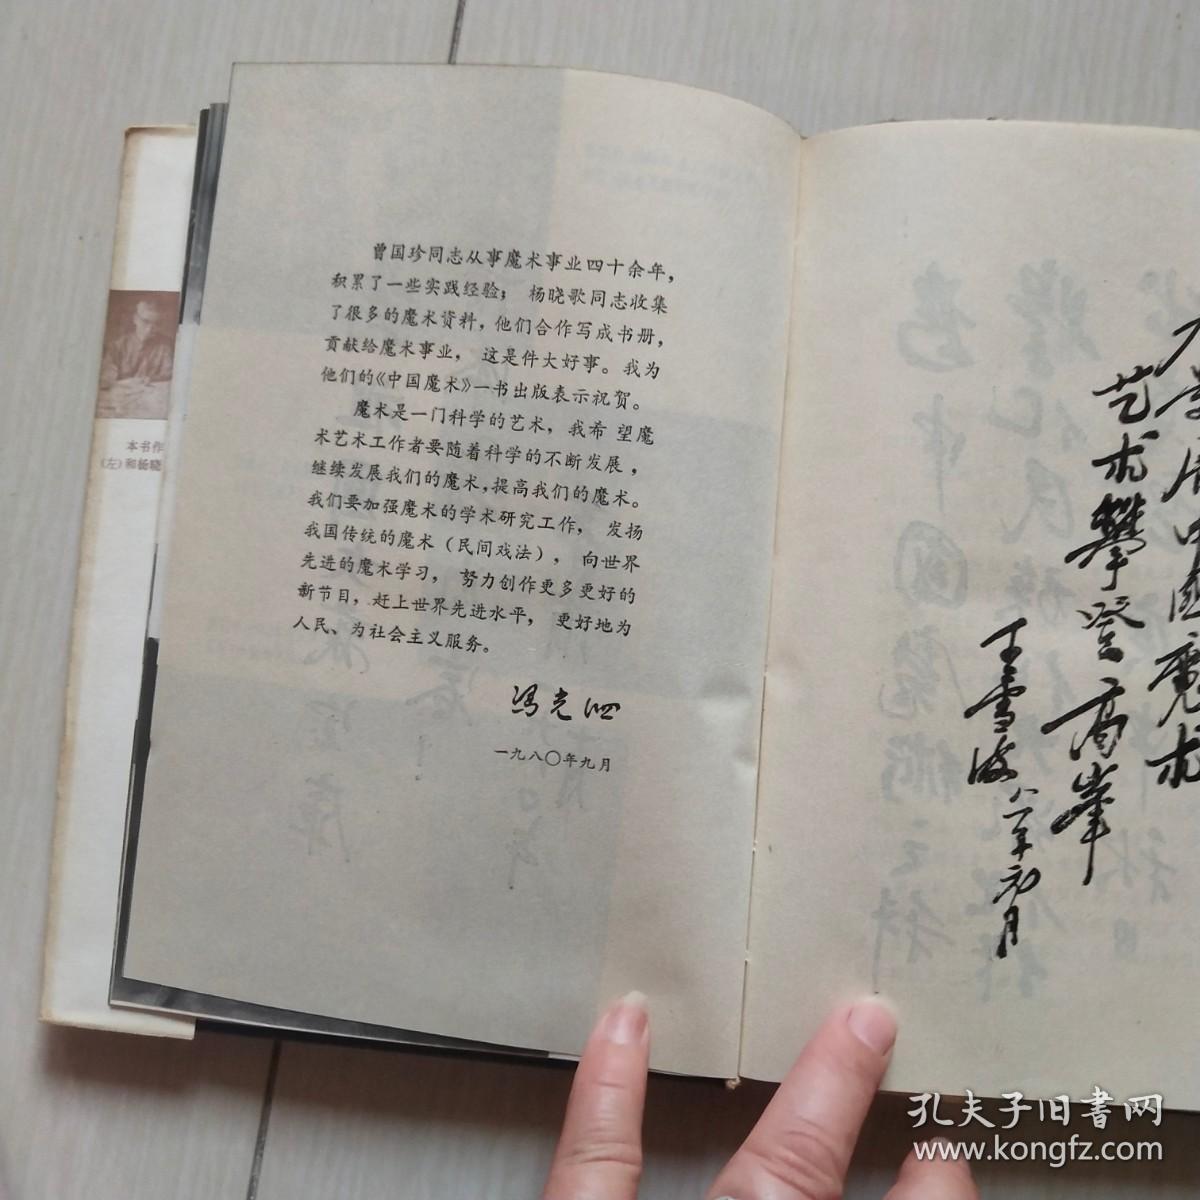 曾国珍同志从事魔术事业四十余年，
积累了一些实践经验； 杨晓歌同志收集
了很多的魔术资料，他们合作写成书册，
贡献给魔术事业， 这是件大好事。我为
他们的《中国魔术》一书出版表示祝贺。
魔术是一门科学的艺术，我希 望魔
术艺术工作者要随着科学的不断发展，
继续发展我们的魔术，提高我们的魔术。
我们要加强魔术的学术研究工作， 发扬
我国传统的魔术（民间戏法）， 向世界
先进的魔术学习， 努力创作更多更好的
新节目，赶上世界先进水平， 更好地为
人民、为社会主义服务。
冯光泗
一九八〇年九月
中国魔术
艺术攀登高峰
王雪波 八一年元月
本书作
(左)和杨晓
孔夫子旧书网
www.kongfz.com